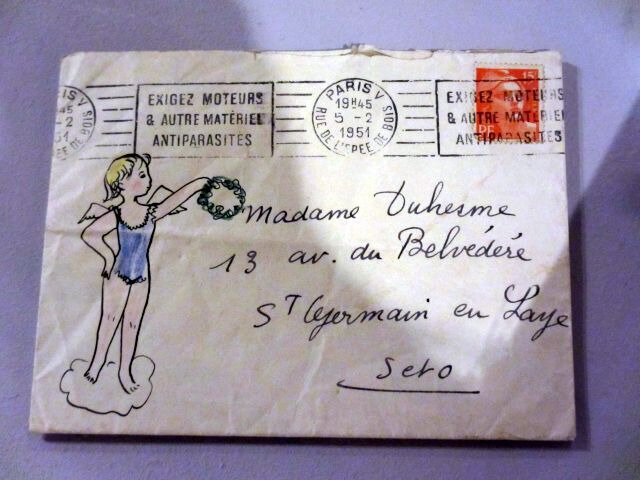 IS V
45
- 2
51
EPEE DE BOIS
EXIGEZ MOTEURS
& AUTRE MATÉRIEL
ANTIPARASITES
PARIS V
19H45
5 - 2
1951
RUE DE L'EPEE DE BOIS
15F
EXIGEZ MOTEURS
& AUTRE MATERIEL
ANTIPARASITES
Madame Duhesme
13 av. du Belvédéré
ST Germain en Laye
Seto